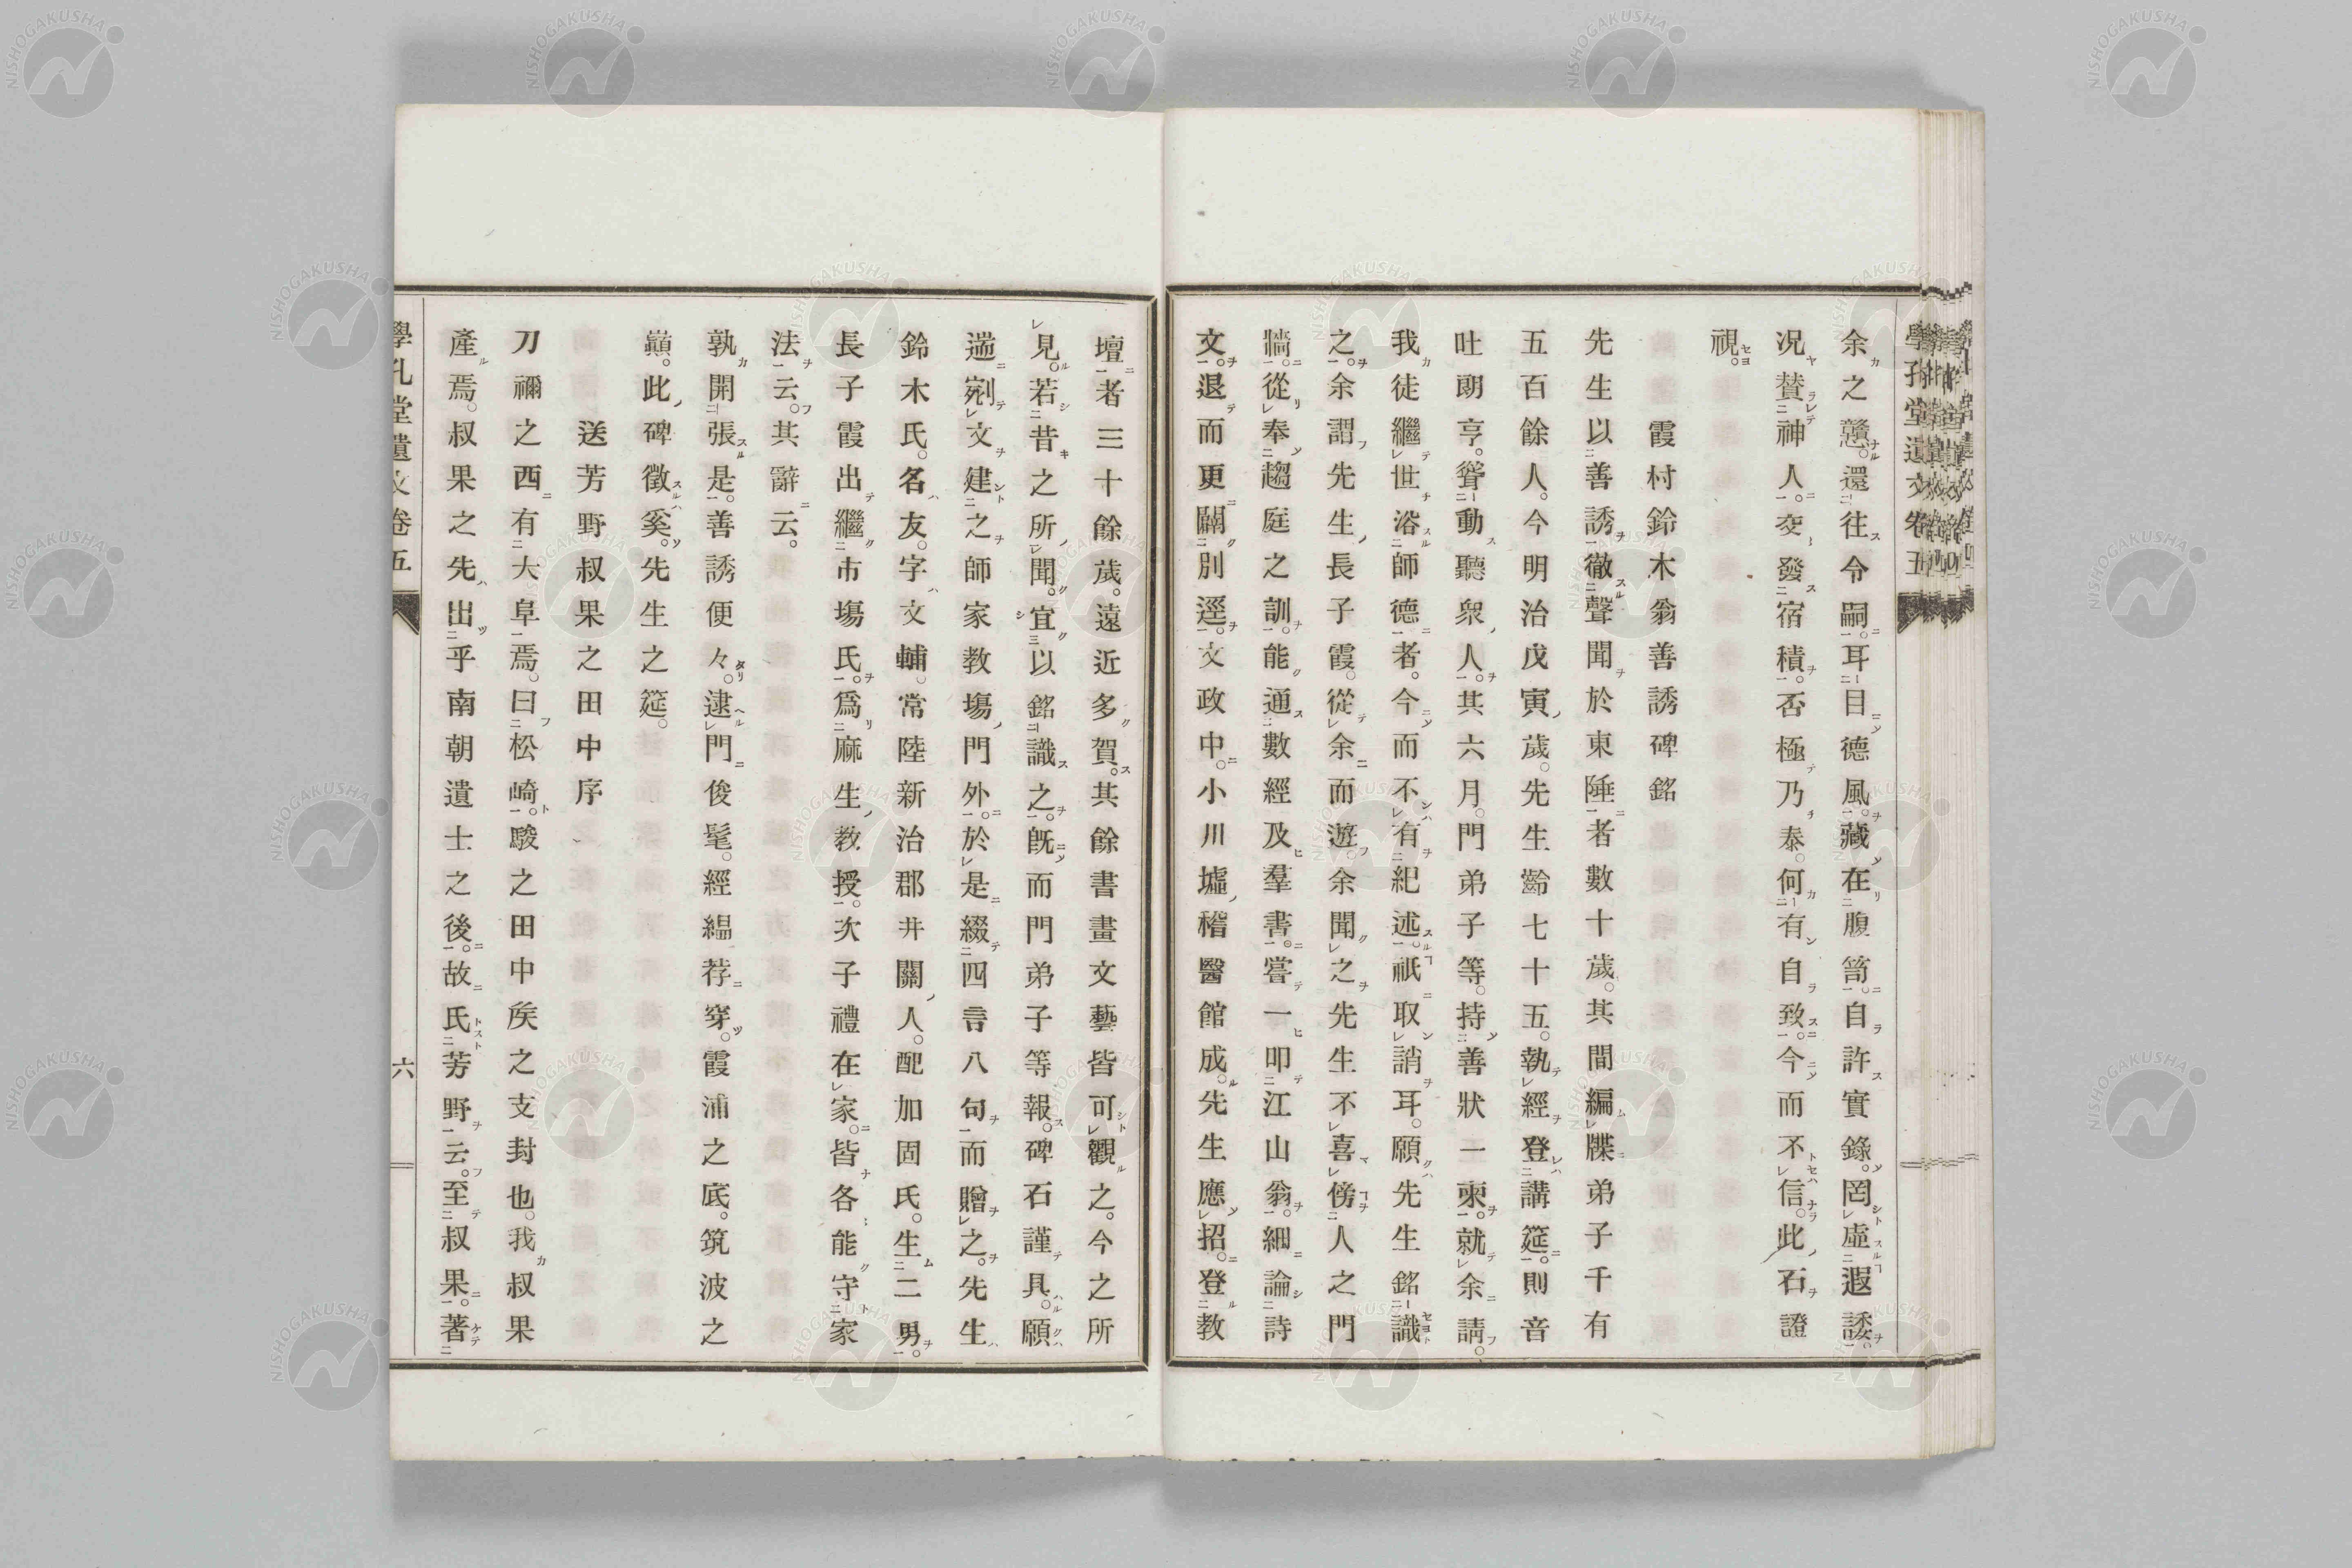 余之戇。還往令嗣。耳目德風。藏在腹笥。自許實錄。罔虛遐諉。
况贊神人。交發宿積。否極乃泰。何有自致。今而不信。此石證
視。
霞村鈴木翁善誘碑銘
先生以善誘徹聲聞於東陲者數十歲。其間編牒弟子千有
五百餘人。今明治戊寅歲。先生齡七十五。執經登講筵。則音
吐朗亨。聳動聽衆人。其六月。門弟子等。持善狀一東。就余請。
我徒繼世浴師德者。今而不有紀述。祇取誚耳。願先生銘識
之。余謂先生長子霞。從余而遊。余聞之先生不喜傍人之門
牆。從奉趨庭之訓。能通數經及羣書。嘗一叩江山翁。細論詩
文。退而更闢別逕。文政中。小川墟稽醫館成。先生應招。登教
壇者三十餘歲。遠近多賀。其餘書畫文藝皆可觀之。今之所
見。若昔之所聞。宜以銘識之。既而門弟子等報。碑石謹具。願
遄剜文建之師家教塲門外。於是綴四言八句而贈之。先生
鈴木氏。名友。字文輔。常陸新治郡井關人。配加固氏。生二男。
長子霞出繼市塲氏。爲麻生教授。次子禮在家。皆各能守家
法云。其辭云。
孰開張是。善誘便々。逮門俊髦。經緼荐穿。霞浦之底。筑波之
巓。此碑徵奚。先生之筵。
送芳野叔果之田中序
刀禰之西有大阜焉。曰松崎。駿之田中矦之支封也。我叔果
產焉。叔果之先出乎南朝遺士之後。故氏芳野云。至叔果。著
學孔堂遺文卷五
六